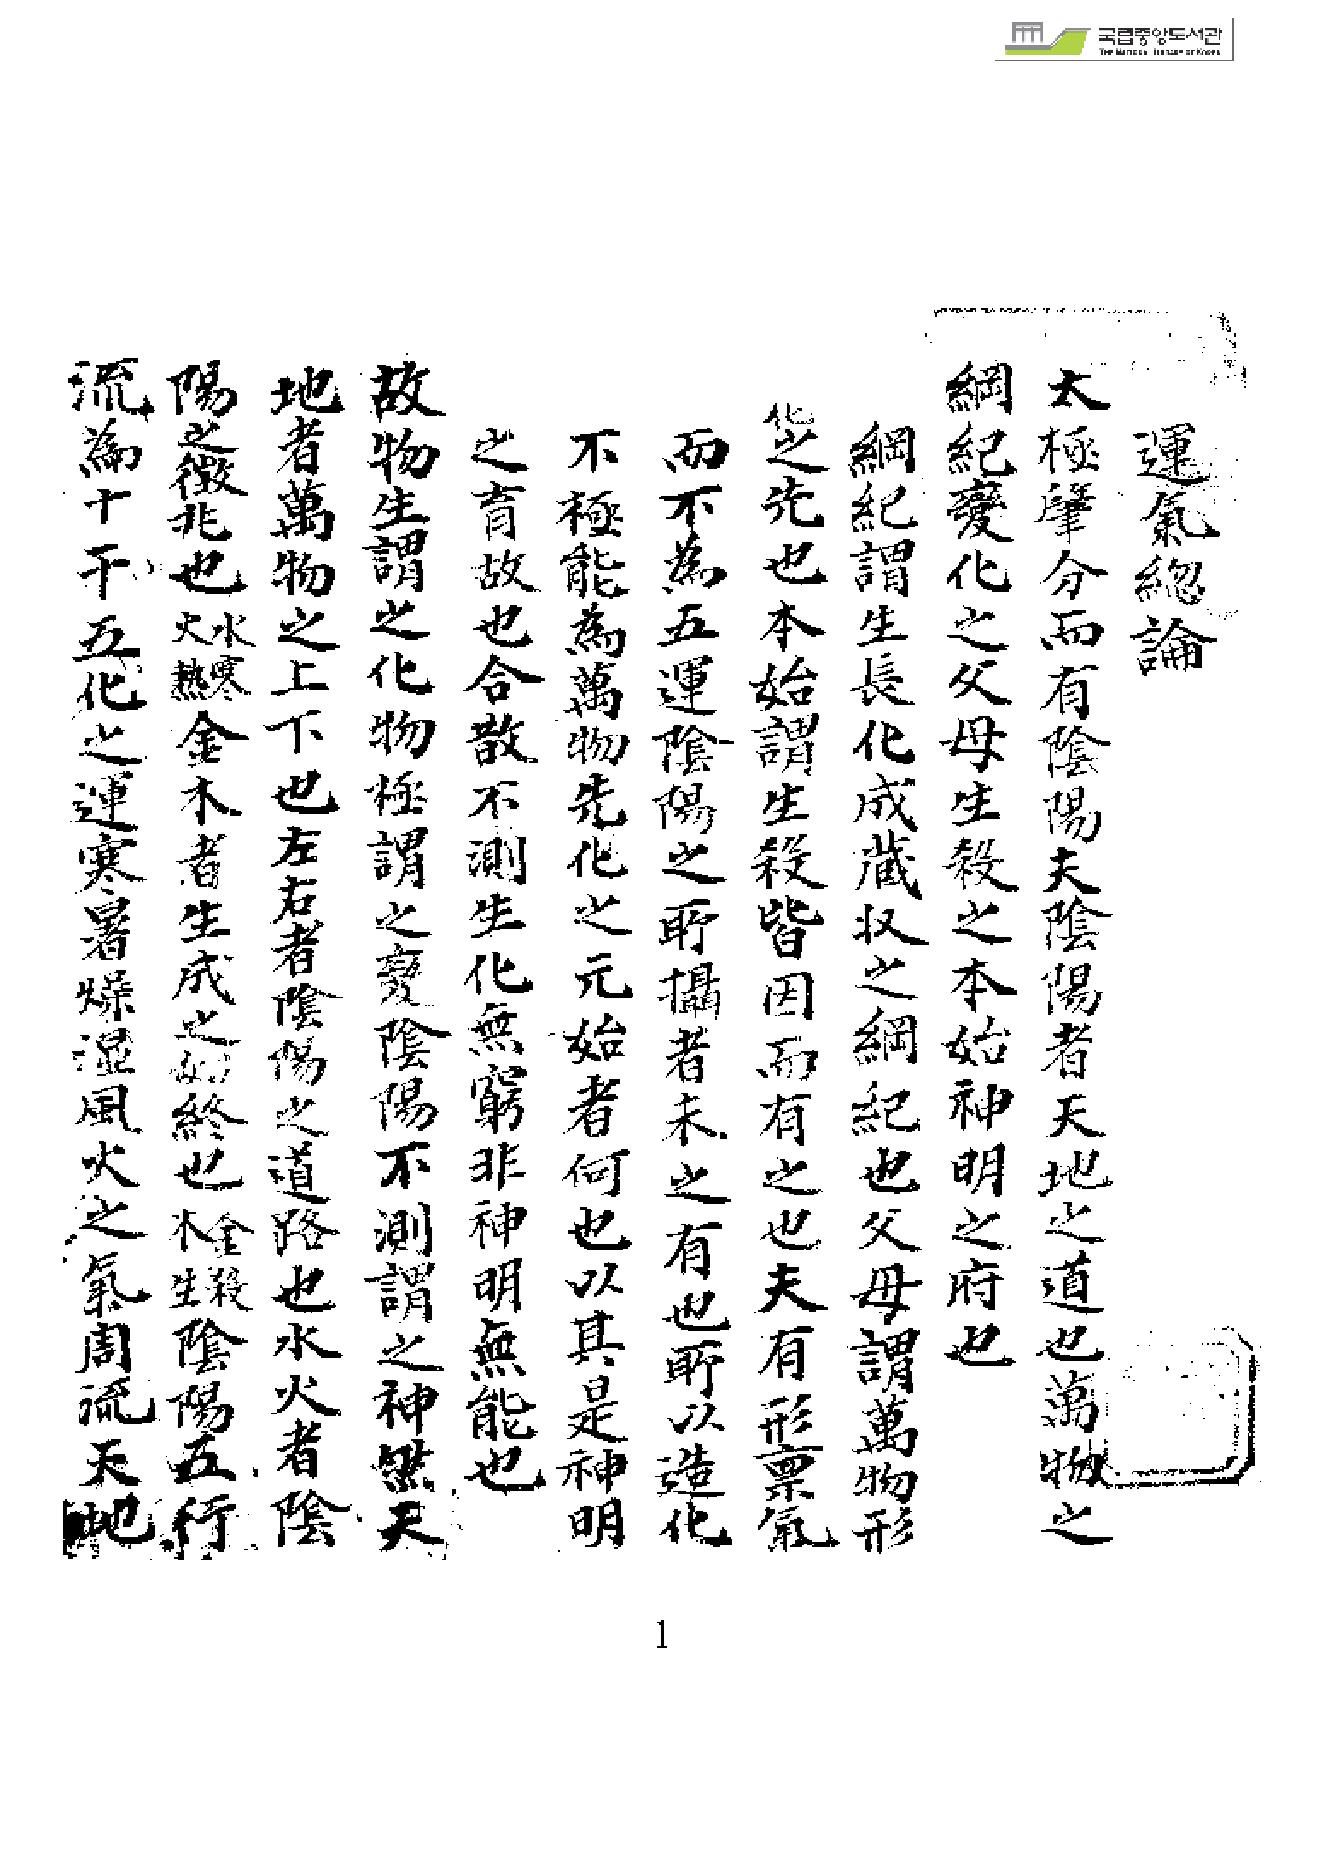 국립중앙도서관
THE NATIONAL LIBRARY OF KOREA
運氣總論
太極肇分而有陰陽夫陰陽者天地之道也萬物之
綱紀變化之父母生殺之本始神明之府也
綱紀謂生長化成蔵収之綱紀也父母謂萬物形
化之先也本始謂生殺皆因而有之也夫有形稟氣
而不為五運陰陽之所攝者未之有也所以造化
不極能為萬物先化之元始者何也以其是神明
之育故也合散不測生化無窮非神明無能也
故物生謂之化物極謂之變陰陽不測謂之神然天
地者萬物之上下也左右者陰陽之道路也水火者陰
陽之徵兆也水寒火熱金木者生成之終也金殺木生陰陽五行
流為十干五化之運寒暑燥湿風火之氣周流天地
1